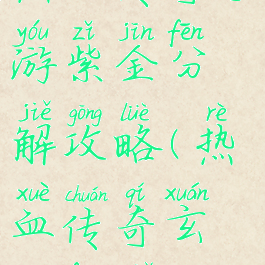 yóu zǐ jīn fēn
游紫金分
jiě gōng lüè rè
解攻略(热
xuè chuán qí xuán
血传奇玄